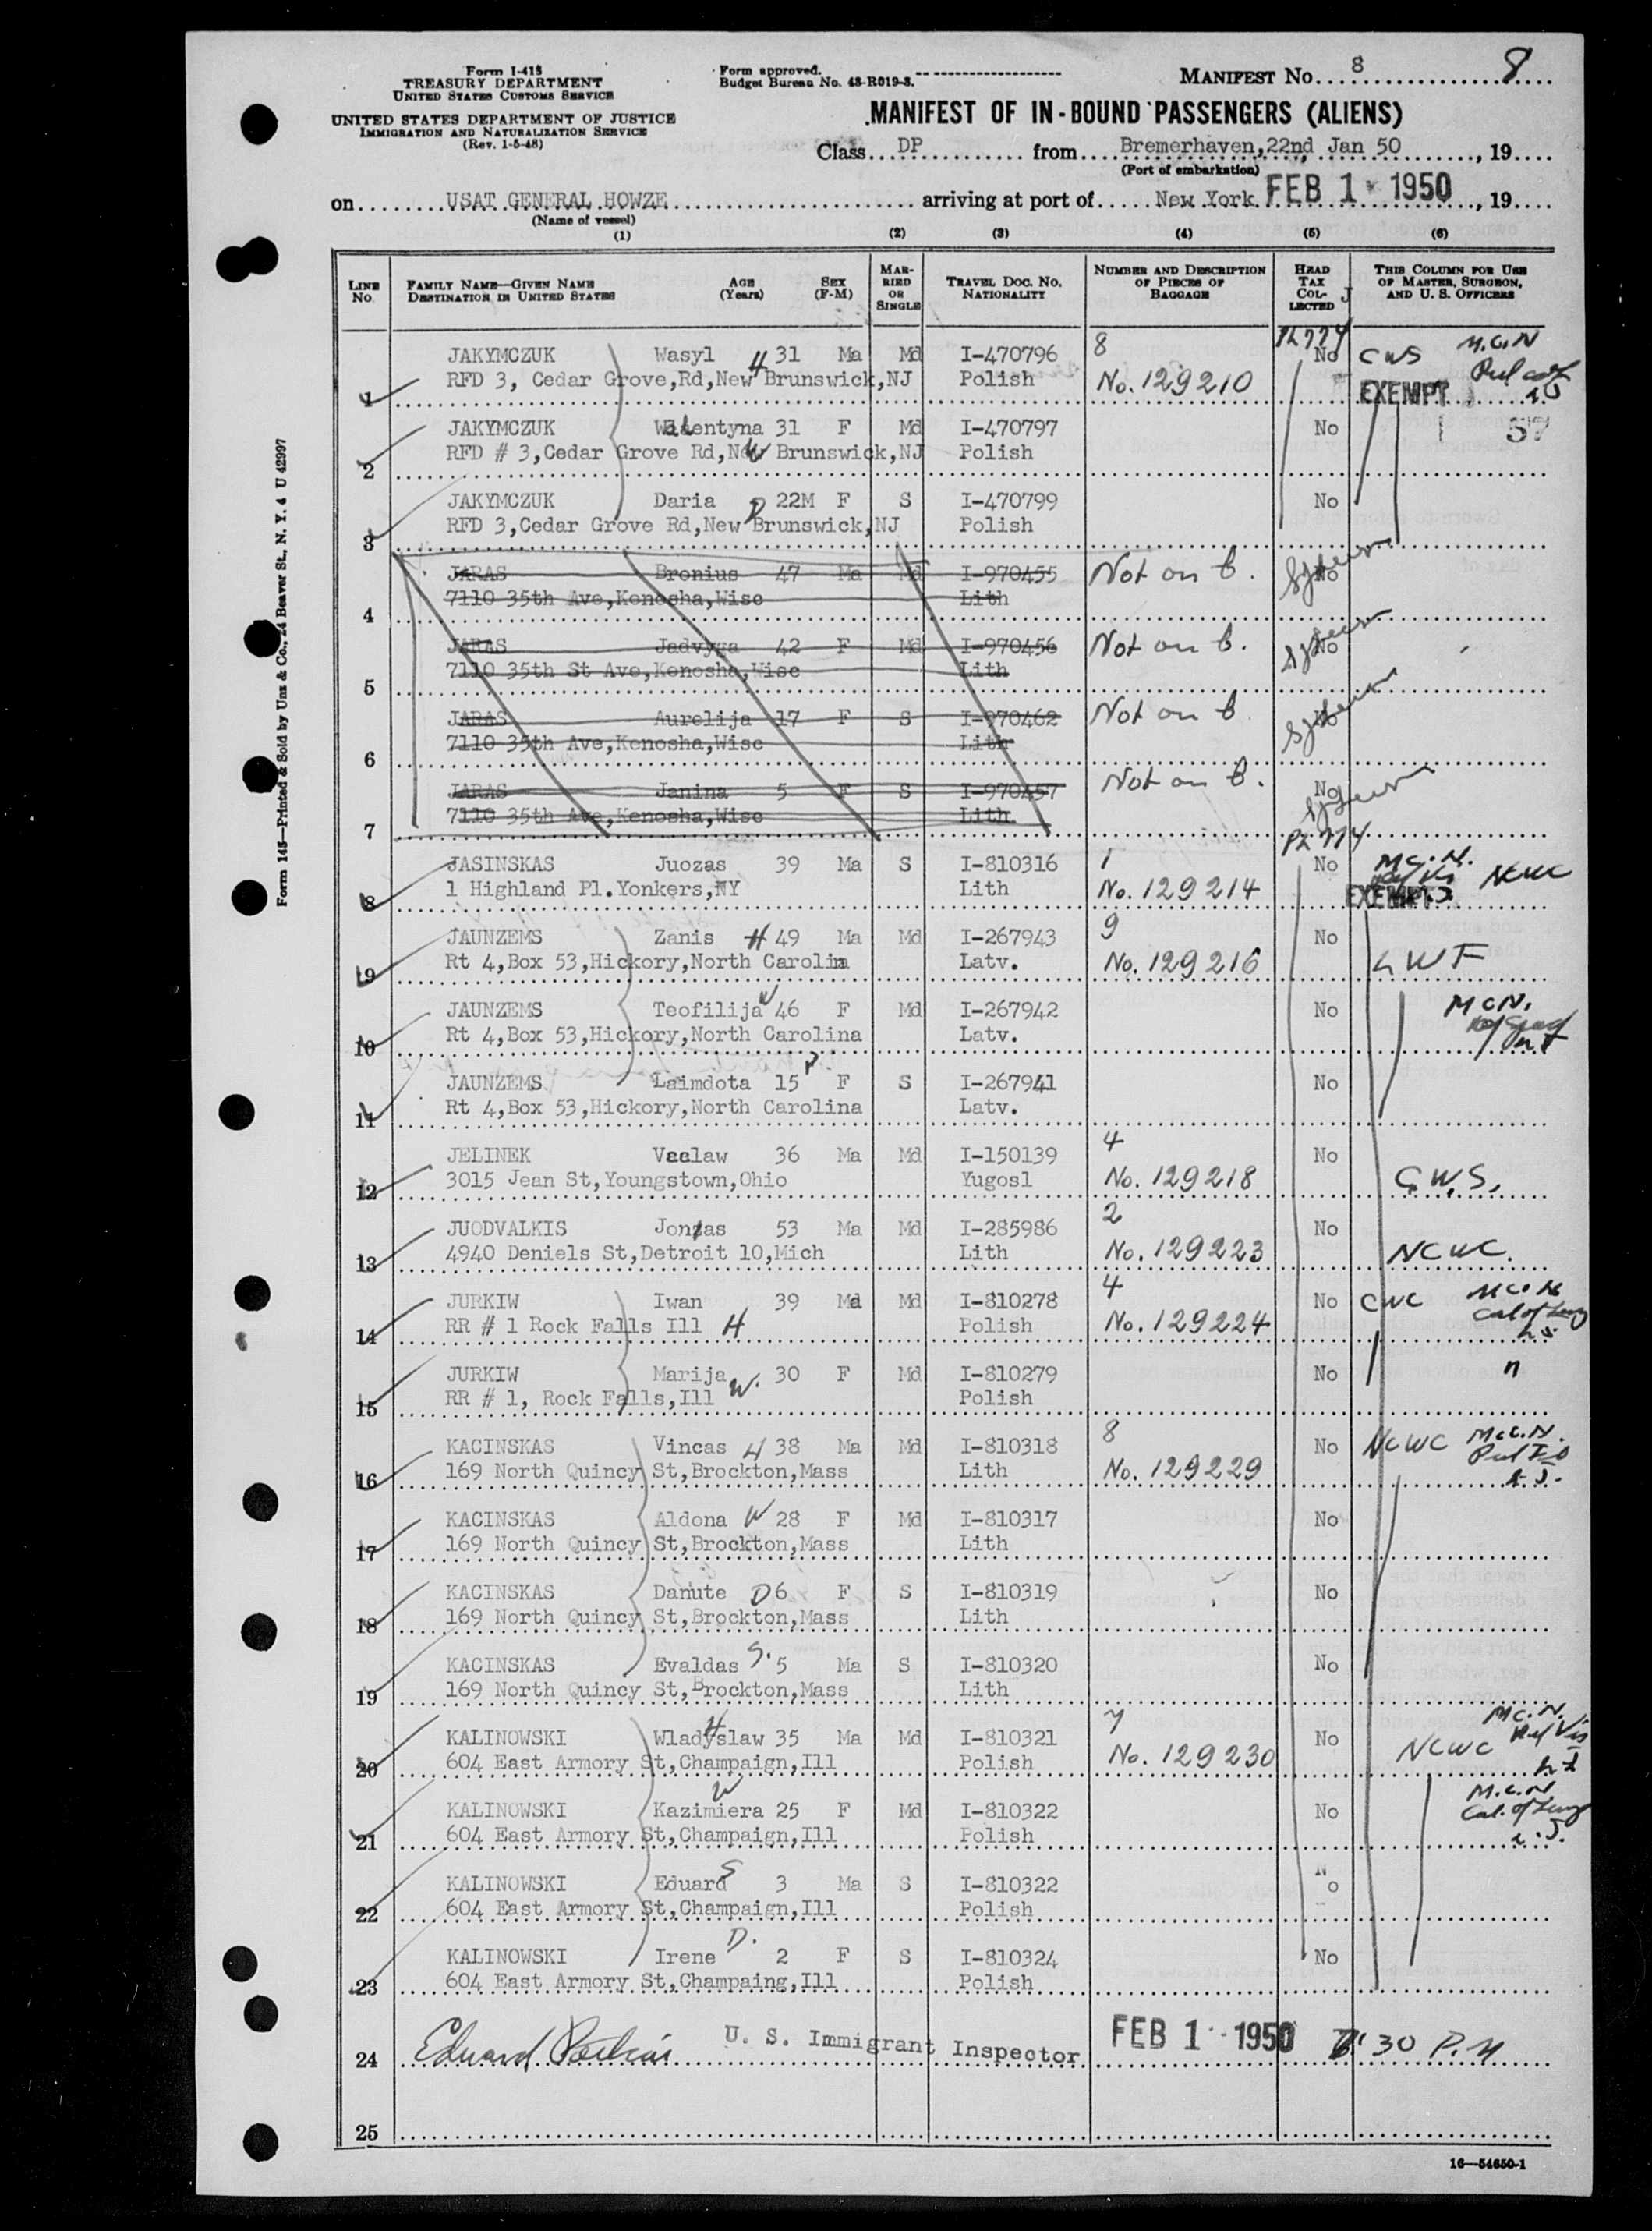 Form I-418
TREASURY DEPARTMENT
UNITED STATES CUSTOMS SERVICE
UNITED STATES DEPARTMENT OF JUSTICE
IMMIGRATION AND NATURALIZATION SERVICE
(Rev. 1-5-48)
Form approved.
Budget Bureau No. 43-R019-3.
MANIFEST No. 8 8
MANIFEST OF IN-BOUND PASSENGERS (ALIENS)
Class DP from Bremerhaven, 22nd Jan 50, 19
(Port of embarkation)
on USAT GENERAL HOWZE arriving at port of New York FEB 1 1950, 19
(Name of vessel)
(1) (2) (3) (4) (5) (6)
LINE No. FAMILY NAME—GIVEN NAME DESTINATION IN UNITED STATES AGE (Years) SEX (F-M) MARRIED OR SINGLE TRAVEL DOC. NO. NATIONALITY NUMBER AND DESCRIPTION OF PIECES OF BAGGAGE HEAD TAX COLLECTED THIS COLUMN FOR USE OF MASTER, SURGEON, AND U. S. OFFICERS
JAKYMCZUK Wasyl H 31 Ma Md I-470796 8 No CWS M.C.N
1 RFD 3, Cedar Grove,Rd,New Brunswick,NJ Polish No. 129210 EXEMPT
JAKYMCZUK Walentyna 31 F Md I-470797 No 57
2 RFD # 3,Cedar Grove Rd,New Brunswick,NJ W Polish
JAKYMCZUK Daria D 22M F S I-470799 No
3 RFD 3,Cedar Grove Rd,New Brunswick,NJ Polish
JARAS Bronius 47 Ma Md I-970455 Not on b. No
4 7110 35th Ave,Kenosha,Wisc Lith
JARAS Jadvyga 42 F Md I-970456 Not on b. No
5 7110 35th St Ave,Kenosha,Wisc Lith
JARAS Aurelija 17 F S I-970462 Not on b No
6 7110 35th Ave,Kenosha,Wisc Lith
JARAS Janina 5 F S I-970457 Not on b. No
7 7110 35th Ave,Kenosha,Wisc Lith.
PL 774
JASINSKAS Juozas 39 Ma S I-810316 1 No M.C.N. NCWC
8 1 Highland Pl.Yonkers,NY Lith No. 129214 EXEMPT
JAUNZEMS Zanis H 49 Ma Md I-267943 9 No
9 Rt 4,Box 53,Hickory,North Carolina Latv. No. 129216 LWF
JAUNZEMS Teofilija W 46 F Md I-267942 No M C N.
10 Rt 4,Box 53,Hickory,North Carolina Latv.
JAUNZEMS Laimdota 15 F S I-267941 No
11 Rt 4,Box 53,Hickory,North Carolina Latv.
JELINEK Vaclaw 36 Ma Md I-150139 4 No
12 3015 Jean St,Youngstown,Ohio Yugosl No. 129218 C.W.S.
JUODVALKIS Jonas 53 Ma Md I-285986 2 No
13 4940 Deniels St,Detroit 10,Mich Lith No. 129223 NCWC.
JURKIW Iwan 39 Ma Md I-810278 4 No CWC M.C.N
14 RR # 1 Rock Falls Ill H Polish No. 129224 Cal of Lung
JURKIW Marija W. 30 F Md I-810279 No
15 RR # 1, Rock Falls,Ill Polish
KACINSKAS Vincas H 38 Ma Md I-810318 8 No NCWC M.C.N.
16 169 North Quincy St,Brockton,Mass Lith No. 129229
KACINSKAS Aldona W 28 F Md I-810317 No
17 169 North Quincy St,Brockton,Mass Lith
KACINSKAS Danute D 6 F S I-810319 No
18 169 North Quincy St,Brockton,Mass Lith
KACINSKAS Evaldas S. 5 Ma S I-810320 No
19 169 North Quincy St,Brockton,Mass Lith
KALINOWSKI Wladyslaw H 35 Ma Md I-810321 7 No M.C.N.
20 604 East Armory St,Champaign,Ill Polish No. 129230 NCWC
KALINOWSKI Kazimiera W 25 F Md I-810322 No M.C.N
21 604 East Armory St,Champaign,Ill Polish Cal. of Lung
KALINOWSKI Eduard S 3 Ma S I-810322 No
22 604 East Armory St,Champaign,Ill Polish
KALINOWSKI Irene D. 2 F S I-810324 No
23 604 East Armory St,Champaing,Ill Polish
24 Eduard U. S. Immigrant Inspector FEB 1 - 1950 30 P.M
25
16—54650-1
Form 145—Printed & Sold by Unz & Co., 24 Beaver St., N. Y. 4 U 42997